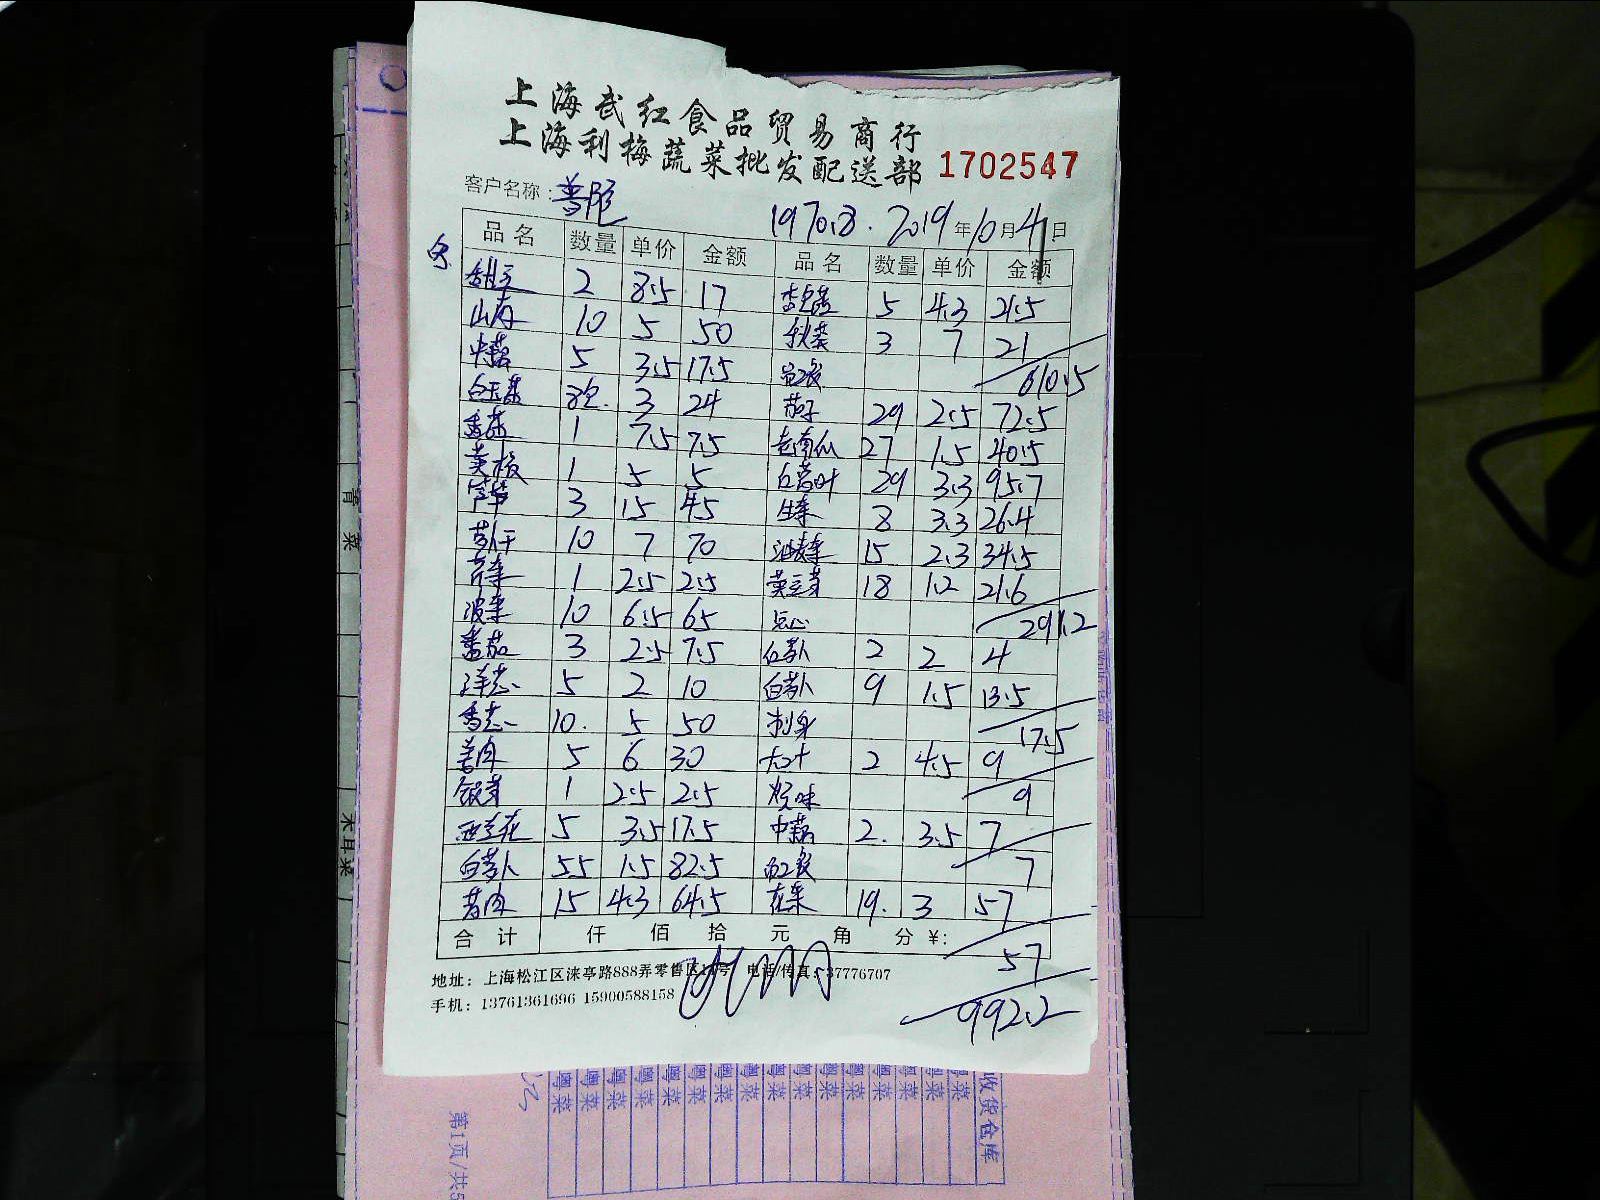 上海武红食品贸易商行
上海利梅蔬菜批发配送部 1702547
客户名称:
1970.8. 2019年10月4日
品名 数量 单价 金额 品名 数量 单价 金额
2 8.5 17 5 4.3 21.5
山药 10 5 50 秋葵 3 7 21
中藕 5 3.5 17.5 610.5
白玉菇 8包 3 24 茄子 29 2.5 72.5
香菇 1 7.5 7.5 老南瓜 27 1.5 40.5
黄椒 1 5 5 29 3.3 95.7
3 15 45 生菜 8 3.3 26.4
萝卜干 10 7 70 油麦菜 15 2.3 34.5
芹菜 1 2.5 2.5 黄豆芽 18 1.2 21.6
菠菜 10 6.5 65 点心 291.2
番茄 3 2.5 7.5 红萝卜 2 2 4
洋葱 5 2 10 白萝卜 9 1.5 13.5
香葱 10. 5 50 刺身 17.5
姜肉 5 6 30 大叶 2 4.5 9
银芽 1 2.5 2.5 烧味 9
西兰花 5 3.5 17.5 中藕 2. 3.5 7
白萝卜 55 1.5 82.5 7
15 4.3 64.5 花菜 19. 3 57
合计 仟 佰 拾 元 角 分 ¥:
57
地址: 上海松江区涞亭路888弄零售区 号 电话/传真: 37776707
手机: 13761361696 15900588158
992.2
收货仓库
粤菜 粤菜 粤菜 粤菜 粤菜 粤菜 粤菜 粤菜 粤菜 粤菜 粤菜 粤菜 粤菜 粤菜 粤菜 粤菜
第1页/共5
青菜
木耳菜